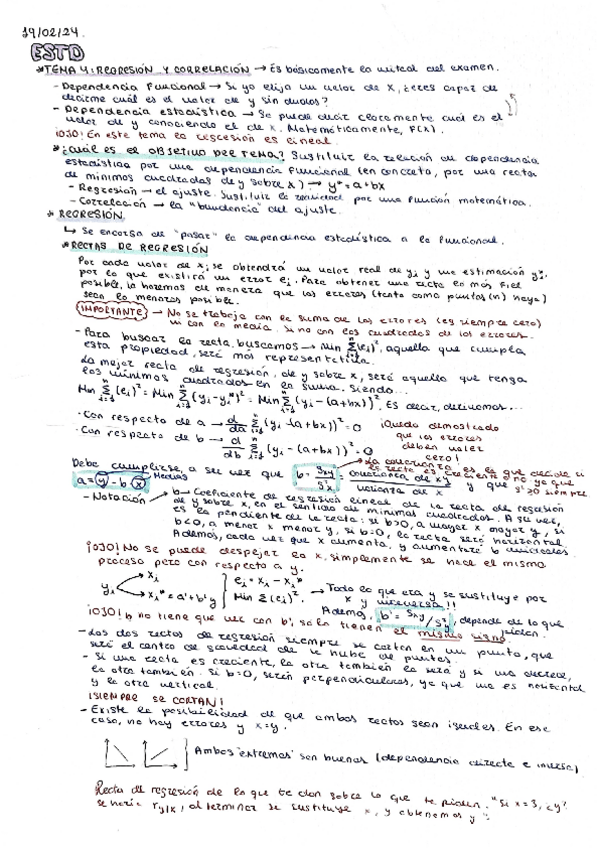 19/02/24.
ESTD
*TEMA 4: REGRESIÓN Y CORRELACIÓN → Es básicamente la mitad del examen.
- Dependencia Funcional → Si yo elijo un valor de X, ¿eres capaz de
decirme cuál es el valor de y sin dudas?
- Dependencia estadística → Se puede decir claramente cuál es el
valor de y conociendo el de x. Matemáticamente, F(x).
¡OJO! En este tema la regresión es lineal.
*¿CUÁL ES EL OBJETIVO DEL TEMA? Sustituir la relación de dependencia
estadística por una dependencia funcional (en concreto, por una recta
de mínimos cuadrados de y sobre x) → y* = a + bx
- Regresión → el ajuste. Sustituir la realidad por una función matemática.
- Correlación → la "bondad" del ajuste.
* REGRESIÓN
↳ Se encarga de "pasar" la dependencia estadística a la funcional.
*RECTAS DE REGRESIÓN
Por cada valor de xi se obtendrá un valor real de yi y una estimación yi*,
por lo que existirá un error ei. Para obtener una recta lo más fiel
posible, lo haremos de manera que los errores (tanto como puntos (n) haya)
sean lo menores posible.
IMPORTANTE → No se trabaja con la suma de los errores (es siempre cero)
ni con la media. Si no con los cuadrados de los errores.
- Para buscar la recta, buscamos → Min Σ(ei)², aquella que cumpla
esta propiedad, será más representativa.
La mejor recta de regresión, de y sobre x, será aquella que tenga
los mínimos cuadrados en la suma. Siendo...
Min Σ(ei)² = Min Σ(yi - yi*)² = Min Σ(yi - (a+bx))². Es decir, derivamos...
- Con respecto de a → d/da Σ(yi - (a+bx))² = 0
- Con respecto de b → d/db Σ(yi - (a+bx))² = 0
¡Queda demostrado
que los errores
deben valer
cero!
Debe cumplirse, a su vez que b = Sxy/S²x = covarianza de xy / varianza de x
La covarianza es la que decide si
la recta es creciente o no ya que
y que S²>0 siempre
a = y - b x
Medias
- Notación
b → Coeficiente de regresión lineal de la recta de regresión
de y sobre x, en el sentido de mínimos cuadrados. A su vez,
es la pendiente de la recta: si b>0, a mayor x mayor y, si
b<0, a menor x menor y, si b=0, la recta será horizontal.
Además, cada vez que x aumenta, y aumentará b unidades.
¡OJO! No se puede despejar la x, simplemente se hace el mismo
proceso pero con respecto a y.
yi
xi
xi* = a' + b'y
ei = xi - xi*
Min Σ(ei)².
→ Todo lo que era y se sustituye por
x y viceversa!!
Además, b' = Sxy/S²y, depende de lo que
pidan.
¡OJO! b no tiene que ver con b', solo tienen el mismo signo.
- Las dos rectas de regresión siempre se cortan en un punto, que
será el centro de gravedad de la nube de puntos.
- Si una recta es creciente, la otra también lo será y si una decrece,
la otra también. Si b=0, serán perpendiculares, ya que una es horizontal
y la otra vertical.
¡SIEMPRE SE CORTAN!
- Existe la posibilidad de que ambas rectas sean iguales. En ese
caso, no hay errores y x=y.
Ambos "extremos" son buenos (dependencia directa e inversa)
Recta de regresión de lo que te dan sobre lo que te piden. "Si x=3, ¿y?
se haría ry/x, al terminar se sustituye x, y obtenemos y".